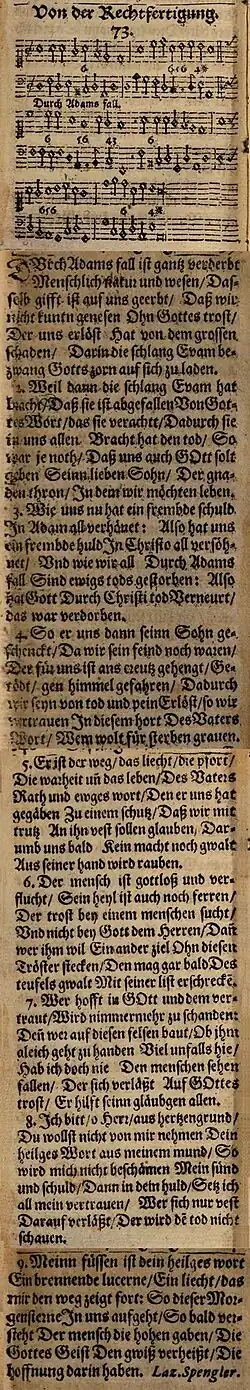 Von der Rechtfertigung.
73.
4 6 56 4*
Durch Adams fall.
6 56 43 6
656 6 4*
DUrch Adams fall ist gantz verderbt
Menschlich natur und wesen/ Das-
selb gifft ist auf uns geerbt/ Daß wir
nicht kuntn genesen Ohn Gottes trost/
Der uns erlöst Hat von dem grossen
schaden/ Darin die schlang Evam be-
zwang Gotts zorn auf sich zu laden.
2. Weil dann die schlang Evam hat
bracht/ Daß sie ist abgefallen Von Got-
tes Wort/ das sie veracht/ Dadurch sie
in uns allen Bracht hat den tod/ So
war je noth/ Daß uns auch GOtt solt
geben Seinn lieben Sohn/ Der gna-
den thron/ In dem wir möchten leben.
3. Wie uns nu hat ein frembde schuld
In Adam all verhönet: Also hat uns
ein frembde huld In Christo all versöh-
net/ Vnd wie wir all Durch Adams
fall Sind ewigs tods gestorben: Also
hat Gott Durch Christi tod Verneurt/
das war verdorben.
4. So er uns dann seinn Sohn ge-
schenckt/ Da wir sein feind noch waren/
Der für uns ist ans creutz gehengt/ Ge-
tödt/ gen himmel gefahren/ Dadurch
wir seyn von tod und pein Erlöst/ so wir
vertrauen In diesem hort Des Vaters
Wort/ Wem wolt für sterben grauen.
5. Er ist der weg/ das liecht/ die pfort/
Die warheit uñ das leben/ Des Vaters
Rath und ewges wort/ Den er uns hat
gegäben Zu einem schutz/ Daß wir mit
trutz An ihn vest sollen glauben/ Dar-
umb uns bald Kein macht noch gwalt
Aus seiner hand wird rauben.
6. Der mensch ist gottloß und ver-
flucht/ Sein heyl ist auch noch ferren/
Der trost bey einem menschen sucht/
Vnd nicht bey Gott dem Herren/ Dañ
wer ihm wil Ein ander ziel Ohn diesen
Tröster stecken/ Den mag gar bald Des
teufels gwalt Mit seiner list erschreckē.
7. Wer hofft in GOtt und dem ver-
traut/ Wird nimmermehr zu schanden:
Deñ wer auf diesen felsen baut/ Ob jhm
gleich geht zu handen Viel unfalls hie/
Hab ich doch nie Den menschen sehen
fallen/ Der sich verläßt Auf GOttes
trost/ Er hilft seinn gläubgen allen.
8. Ich bitt/ o Herr/ aus hertzengrund/
Du wollst nicht von mir nehmen Dein
heilges Wort aus meinem mund/ So
wird mich nicht beschämen Mein sünd
und schuld/ Dann in dein huld/ Setz ich
all mein vertrauen/ Wer sich nur vest
Darauf verläßt/ Der wird dē tod nicht
schauen.
9. Meinn füssen ist dein heilges wort
Ein brennende lucerne/ Ein liecht/ das
mir den weg zeigt fort: So dieser Mor-
gensterne In uns aufgeht/ So bald ver-
steht Der mensch die hohen gaben/ Die
Gottes Geist Den gwiß verheißt/ Die
hoffnung darin haben. Laz. Spengler.